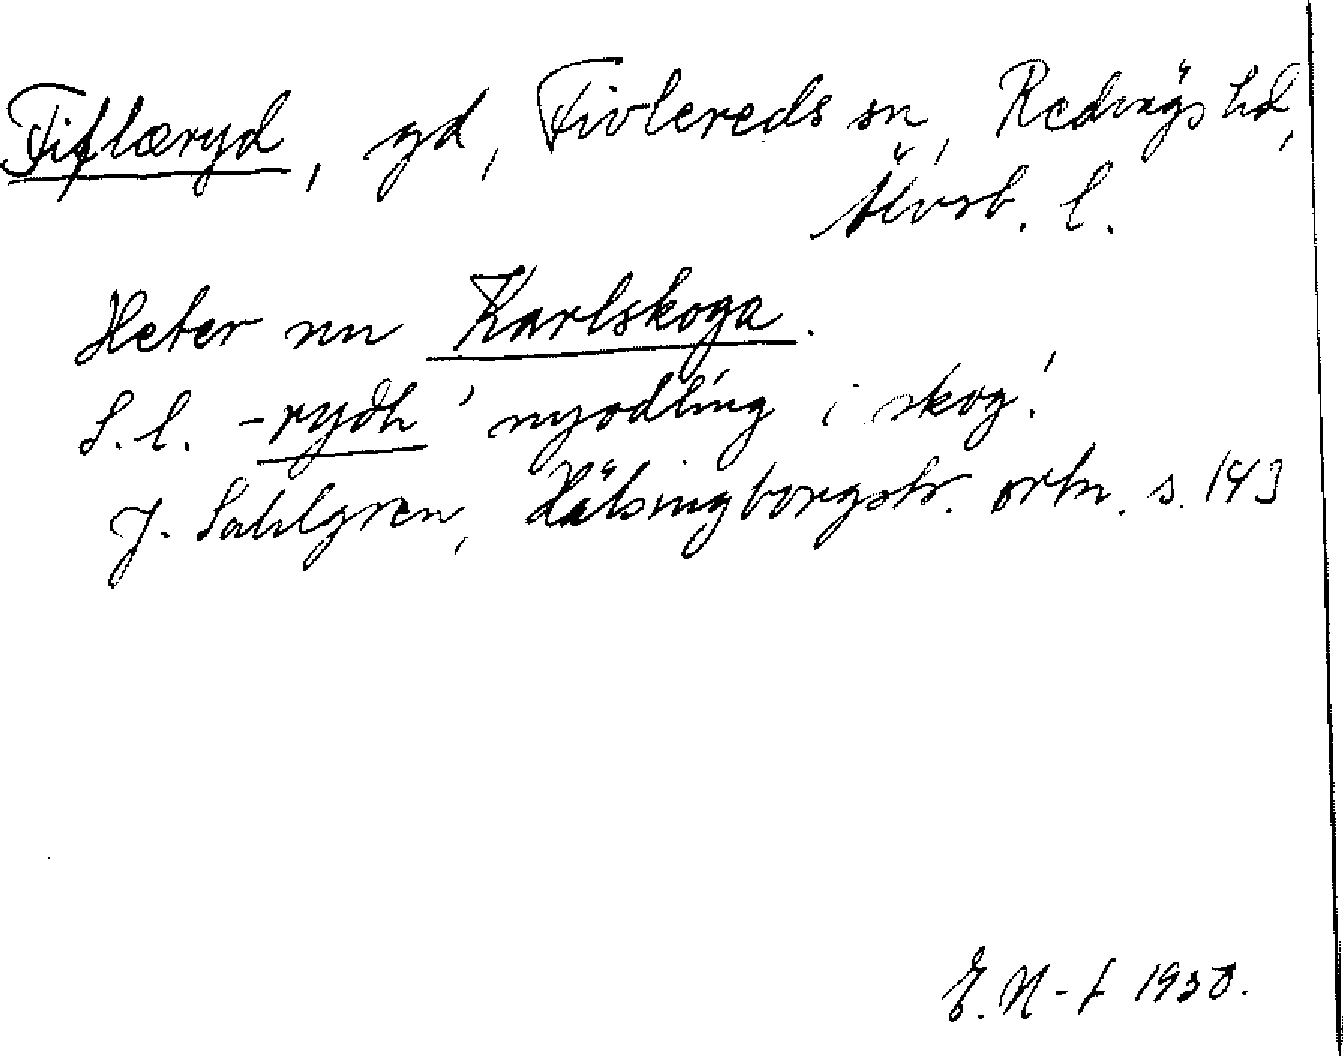 Fiflæryd, gd, Fivlereds sn, Redvägs hd,
Älvsb. l.
Heter nu Karlskoga.
S. l. -rydh 'nyodling i skog'.
J. Sahlgren, Hälsingborgstr. ortn. s. 143
E. N-f 1930.